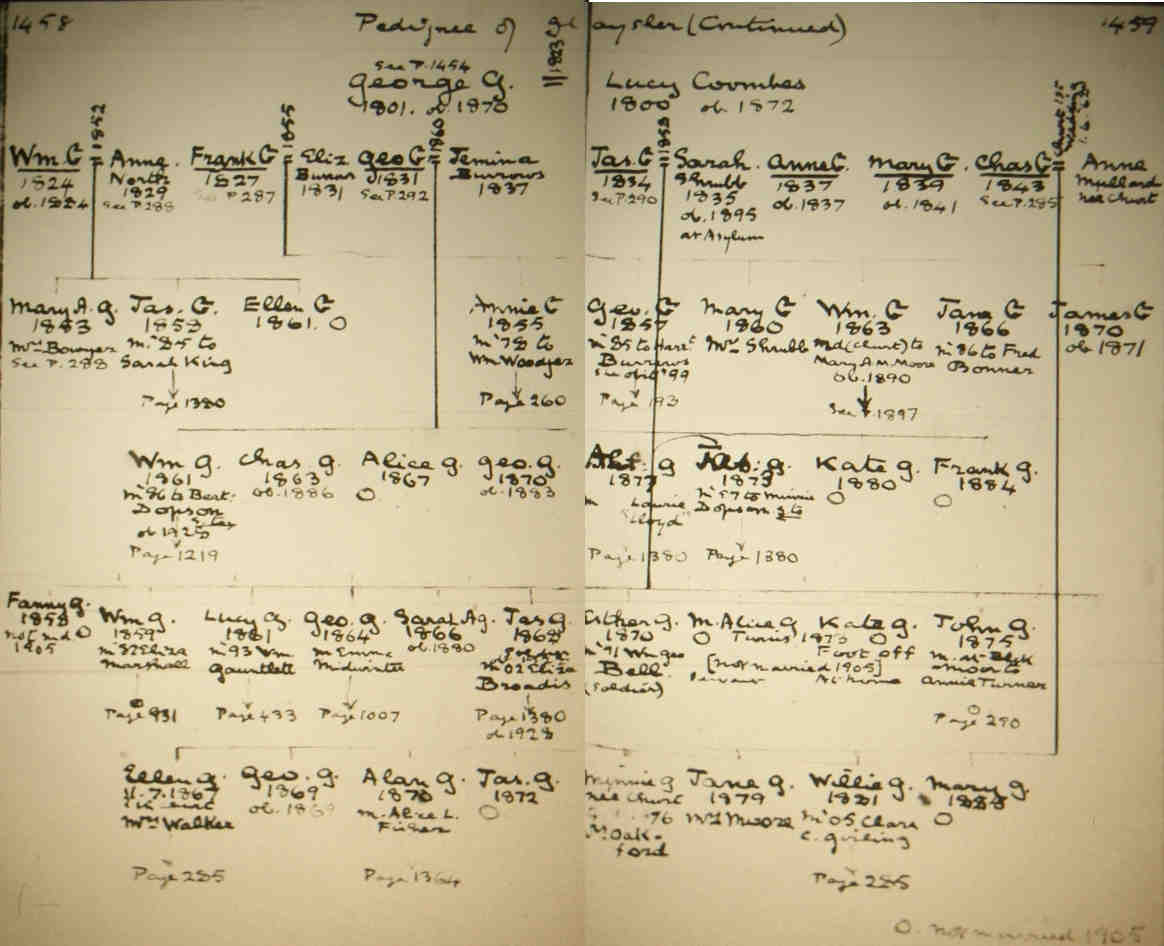 1458
Pedigree of Gl
1823
aysher (Continued)
1459
See P. 1454
George G.
1801. ob. 1870
Lucy Coombes
1800 ob. 1872
1852
1855
1860
1853
Wm G = Anne. Frank G = Eliz Geo G = Jemina
1824 North 1827 1831 Burrows
ob. 1884 1829 P 287 1831 See P. 292 1837
See P. 288
Jas. G = Sarah. Anne G. Mary G. Chas G = Anne
1834 Shrubb 1837 1839 1843 Mullard
See P. 290 1835 ob. 1837 ob. 1841 See P. 285 nee Churt
ob. 1895
at Asylum
Mary A. G. Jas. G. Ellen G Annie G
1853 1861. O 1855
Mrs Bowyer m. '85 to m '78 to
See P. 288 Sarah King Wm Woodger
Page 1380 Page 260
Geo. G Mary G Wm. G Jane G James G
1857 1860 1863 1866 1870
m '85 to Mrs Shrubb Md (Churt) to m '86 to Fred ob. 1871
Burrows Mary A. M. Moore Bonner
ob. 1890
Page 193 See P. 1897
Wm G. Chas. G. Alice G. Geo. G.
1861 1863 1867 1870
m '86 to Bert. ob. 1886 O ob. 1883
Dopson
Page 1219
G G. Kate G. Frank G.
1877 1880 1884
m Lloyd m '97 to Minnie O O
Dopson
Page 1380 Page 1380
Fanny G. Wm G. Lucy G. Geo. G. Sarah A G. Jas G.
1859 1864 1866 1868
not md O m Eliza m '93 Wm m Emma ob. 1880
1905 Marshall Gauntlett Midwinter m '02 Eliza
Broadis
Page 931 Page 433 Page 1007 Page 1380
ob 1928
Esther G. M. Alice G Kate G. John G.
1870 O Twins 1873 O 1875
m '91 Wm Geo Foot off
Bell [not married 1905] At home Annie Turner
(Soldier)
Page 290
Ellen G. Geo. G. Alan G. Jas. G.
11. 7. 1867 1869 1870 1872
ob. 1869 m. Alice L. O
Mrs Walker Fisher
Page 285 Page 1364
Minnie G Jane G. Willie G. Mary G.
nee Churt 1879 1881
76 Mrs Moore m '05 Clara O
Oak- C. Gosling
ford
Page 285
O. not married 1905